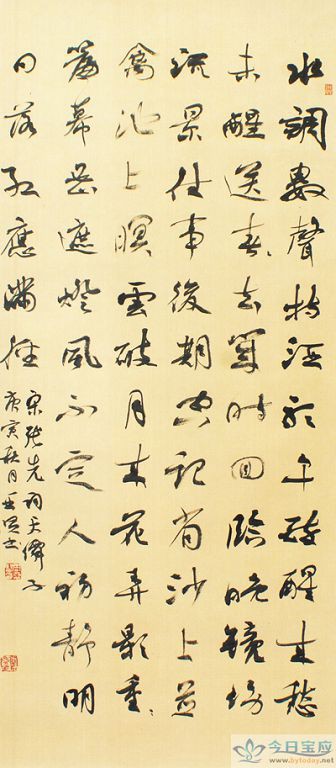 水調數聲持酒聽午醉醒來愁
未醒送春〻去幾時回臨晚鏡傷
流景往事後期空記省沙上並
禽池上暝雲破月來花弄影重〻
簾幕密遮燈風不定人初靜明
日落紅應滿徑
宋張先詞天僊子
庚寅秋月書
今日宝应
www.bytoday.net